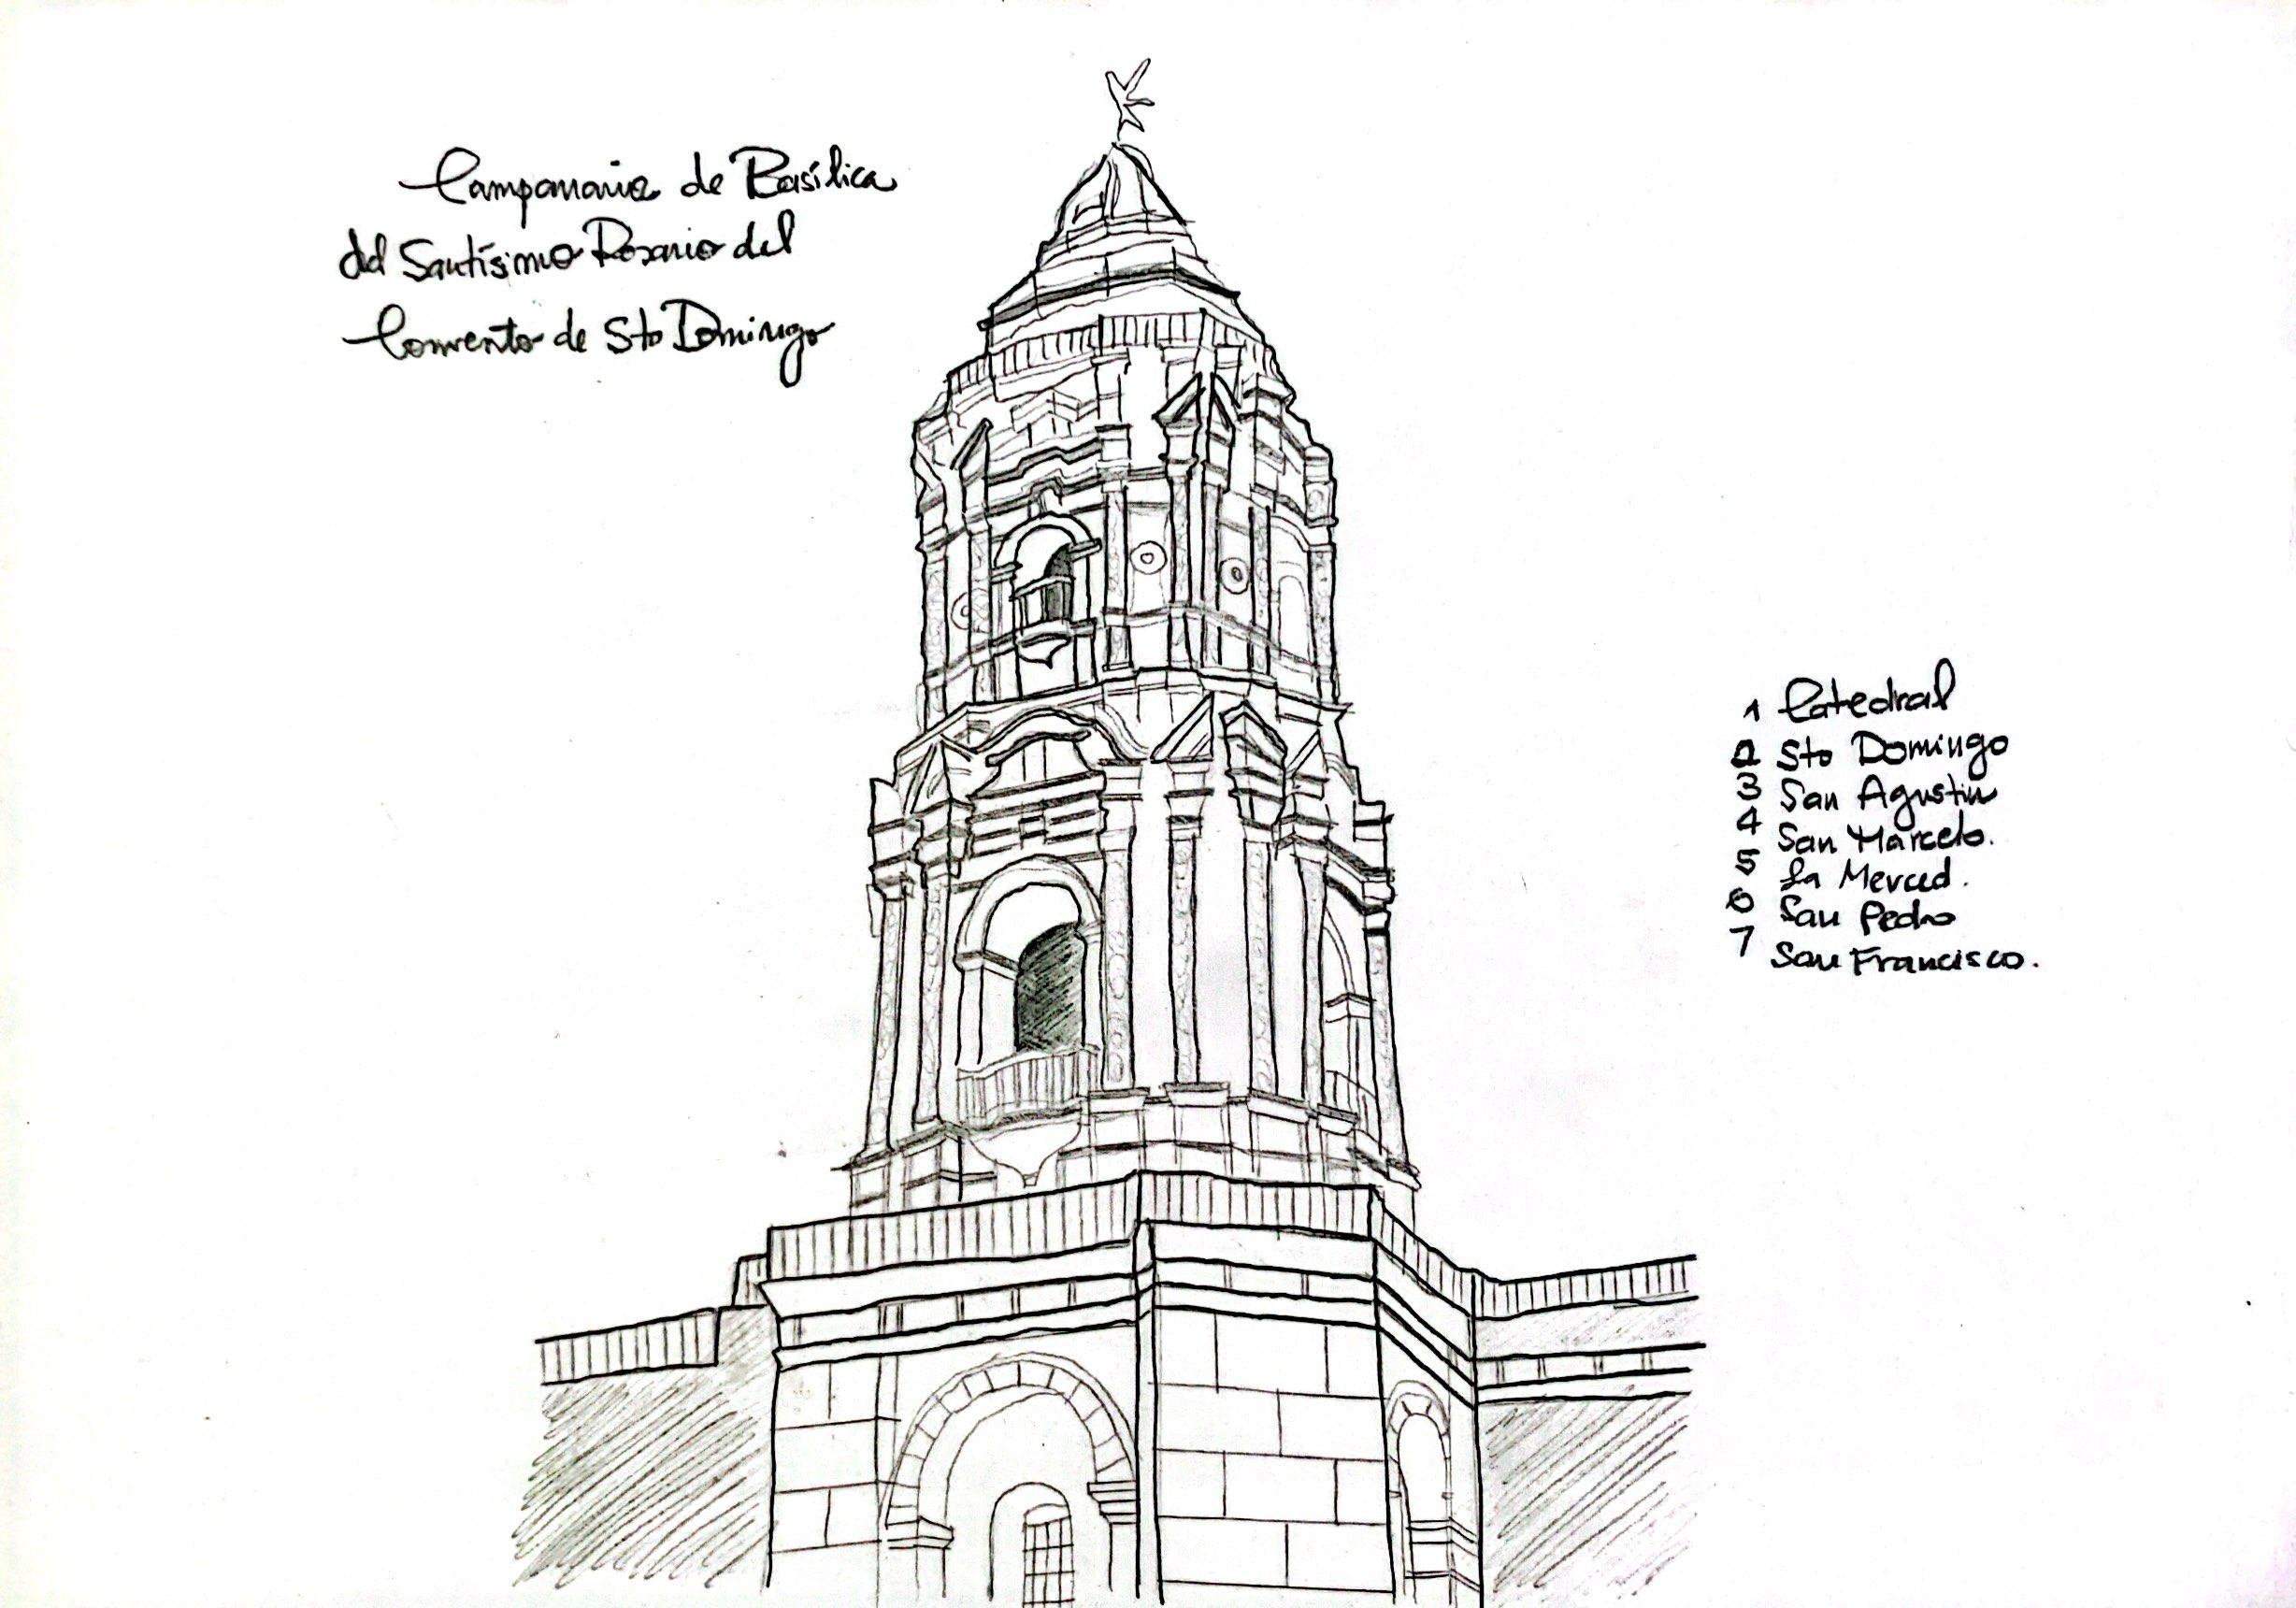 Campanario de Basílica
del Santísimo Rosario del
Convento de Sto Domingo
1 Catedral
2 Sto Domingo
3 San Agustin
4 San Marcelo.
5 La Merced.
6 San Pedro
7 San Francisco.